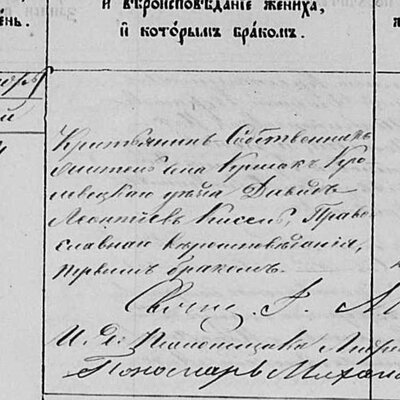 и вѣроисповѣданіе жениха,
и которымъ бракомъ.
ень.
Крестьянинъ Собственникъ
житель села Крмакъ Кро
левецкаго уѣзда Давидъ
Леонтіевъ Кисель, Право
славнаго вѣроисповѣданія,
первымъ бракомъ.
И. д. Псаломщика
Пономарь Михаил